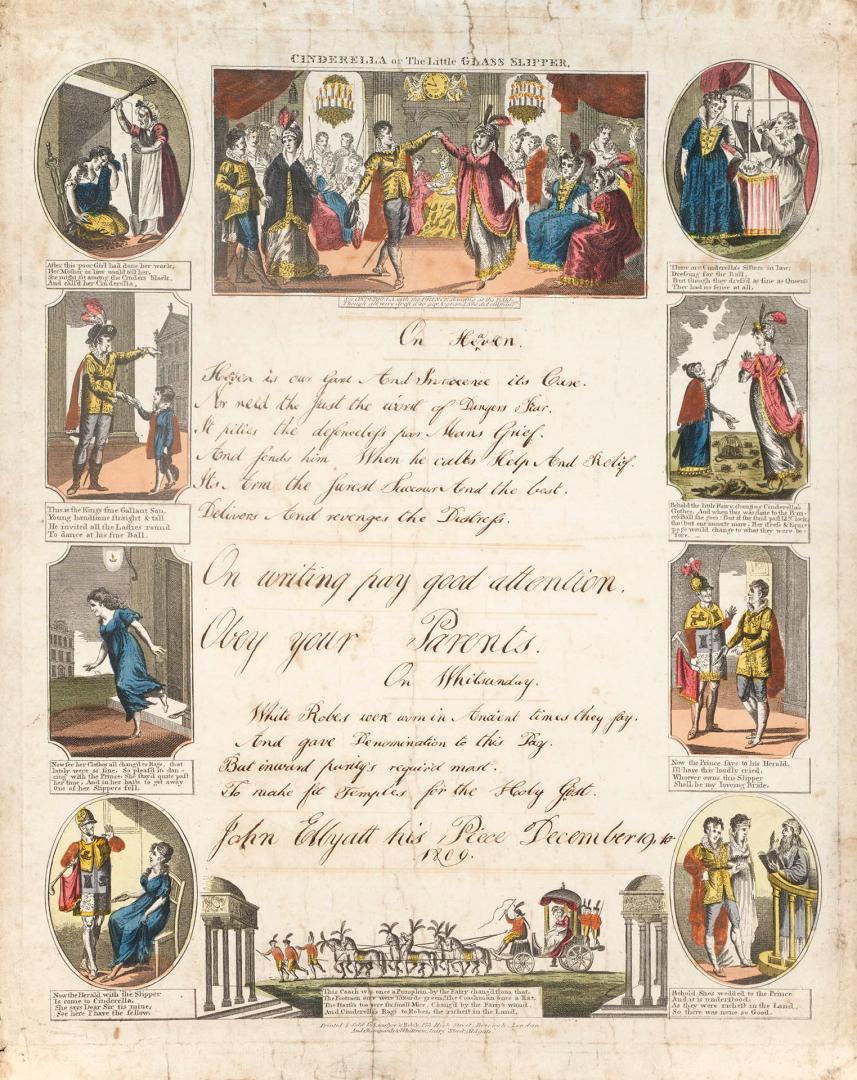 CINDERELLA or The Little GLASS SLIPPER.
After this poor Girl had done her work,
Her Mother in law would tell her,
She might sit among the Cinders black,
And call'd her Cinderella,
See CINDERELLA with the PRINCE dancing at the Ball,
Though all were
These are Cinderella's Sisters in law;
Dressing for the Ball,
But though they dress'd as fine as Queens
They had no sense at all.
This is the Kings fine Gallant Son,
Young handsome straight & tall
He invited all the Ladies round
To dance at his fine Ball.
Behold the little Fairy, changing Cinderella's
Clothes, And when this was done to the Prin-
ce's Ball she goes: But if she staid past 12 o'Clock,
tho' but one minute more, Her dress & Equi-
page would change to what they were be-
fore.
On Heaven.
Heven is our Gard And Innocence its Care.
Nor need the Just the worst of Dangers Fear.
It pities the defenceless poor Mans Grief.
And sends him When he calls Help And Relif.
Its Arm the surest Succour And the best.
Delivers And revenges the Distress.
On writing pay good attention.
Obey your Parents.
On Whitsunday.
White Robes were worn in Ancient times they say.
And gave Denomination to this Day.
But inward purity's requir'd most.
To make fit Temples for the Holy Gost.
John Ellyatt his Piece December 19, to
1809.
Now see her Clothes all chang'd to Rags, that
lately were so fine, So pleas'd in dan-
cing with the Prince, She stay'd quite past
her time, And in her haste to get away
One of her Slippers fell.
Now the Prince says to his Herald,
I'll have this loudly cried;
Whoever owns this Slipper
Shall be my loveing Bride.
Now the Herald with the Slipper
Is come to Cinderella,
She says Dear Sir tis mine,
See here I have the fellow.
This Coach was once a Pumpkin by the Fairy chang'd from that.
The Footmen once were Lizards green, the Coachman once a Rat,
The Horses too were six small Mice, Chang'd by the Fairy's wand
And Cinderella's Rags to Robes, the richest in the Land,
Behold She's wedded to the Prince
And it is understood;
As they were richest in the Land,
So there was none so Good.
Printed & Sold by Langley & Belch, 173 High Street, Borough, London
And Champante & Whitrow, Jewry Street, Aldgate.